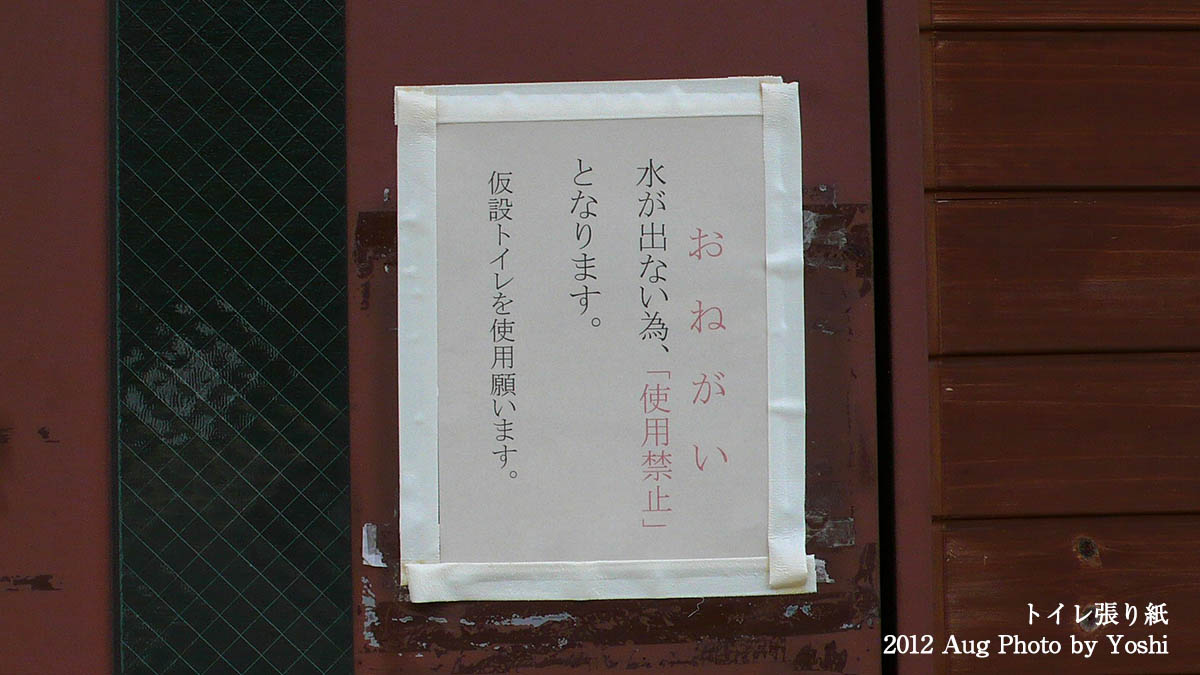 おねがい
水が出ない為、「使用禁止」
となります。
仮設トイレを使用願います。
トイレ張り紙
2012 Aug Photo by Yoshi